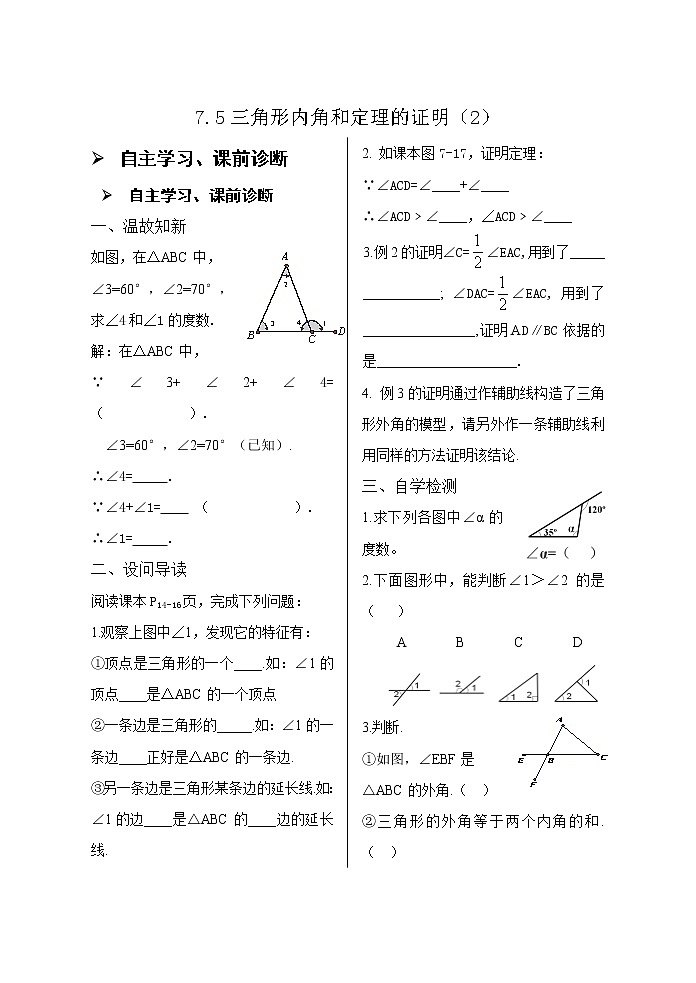 7.5三角形内角和定理的证明（2）
➢ 自主学习、课前诊断
➢ 自主学习、课前诊断
一、温故知新
如图，在△ABC 中，
∠3=60°，∠2=70°，
求∠4和∠1 的度数.
A
2
3
4
1
B
C
D
解：在△ABC 中，
∵∠3+∠2+∠4=
（ ）.
∠3=60°，∠2=70°（已知）.
∴∠4=_____.
∵∠4+∠1=____ （ ）.
∴∠1=_____.
二、设问导读
阅读课本 P14-16页，完成下列问题：
1.观察上图中∠1，发现它的特征有：
①顶点是三角形的一个____.如：∠1 的
顶点____是△ABC 的一个顶点
②一条边是三角形的_____.如：∠1 的一
条边____正好是△ABC 的一条边.
③另一条边是三角形某条边的延长线.如：
∠1 的边____是△ABC 的____边的延长
线.
2. 如课本图 7-17，证明定理：
∵∠ACD=∠____+∠____
∴∠ACD﹥∠____，∠ACD﹥∠____
3.例 2 的证明∠C=1/2∠EAC,用到了_____
___________; ∠DAC=1/2∠EAC, 用到了
________________,证明 AD∥BC 依据的
是____________________.
4. 例 3 的证明通过作辅助线构造了三角
形外角的模型，请另外作一条辅助线利
用同样的方法证明该结论.
三、自学检测
1.求下列各图中∠α的
度数。
35°
α
120°
∠α=（ ）
2.下面图形中，能判断∠1＞∠2 的是
（ ）
A B C D
2 1 2 1 1 2 2 1
3.判断.
①如图，∠EBF 是
△ABC 的外角.（ ）
A
E
B
C
F
②三角形的外角等于两个内角的和.
（ ）